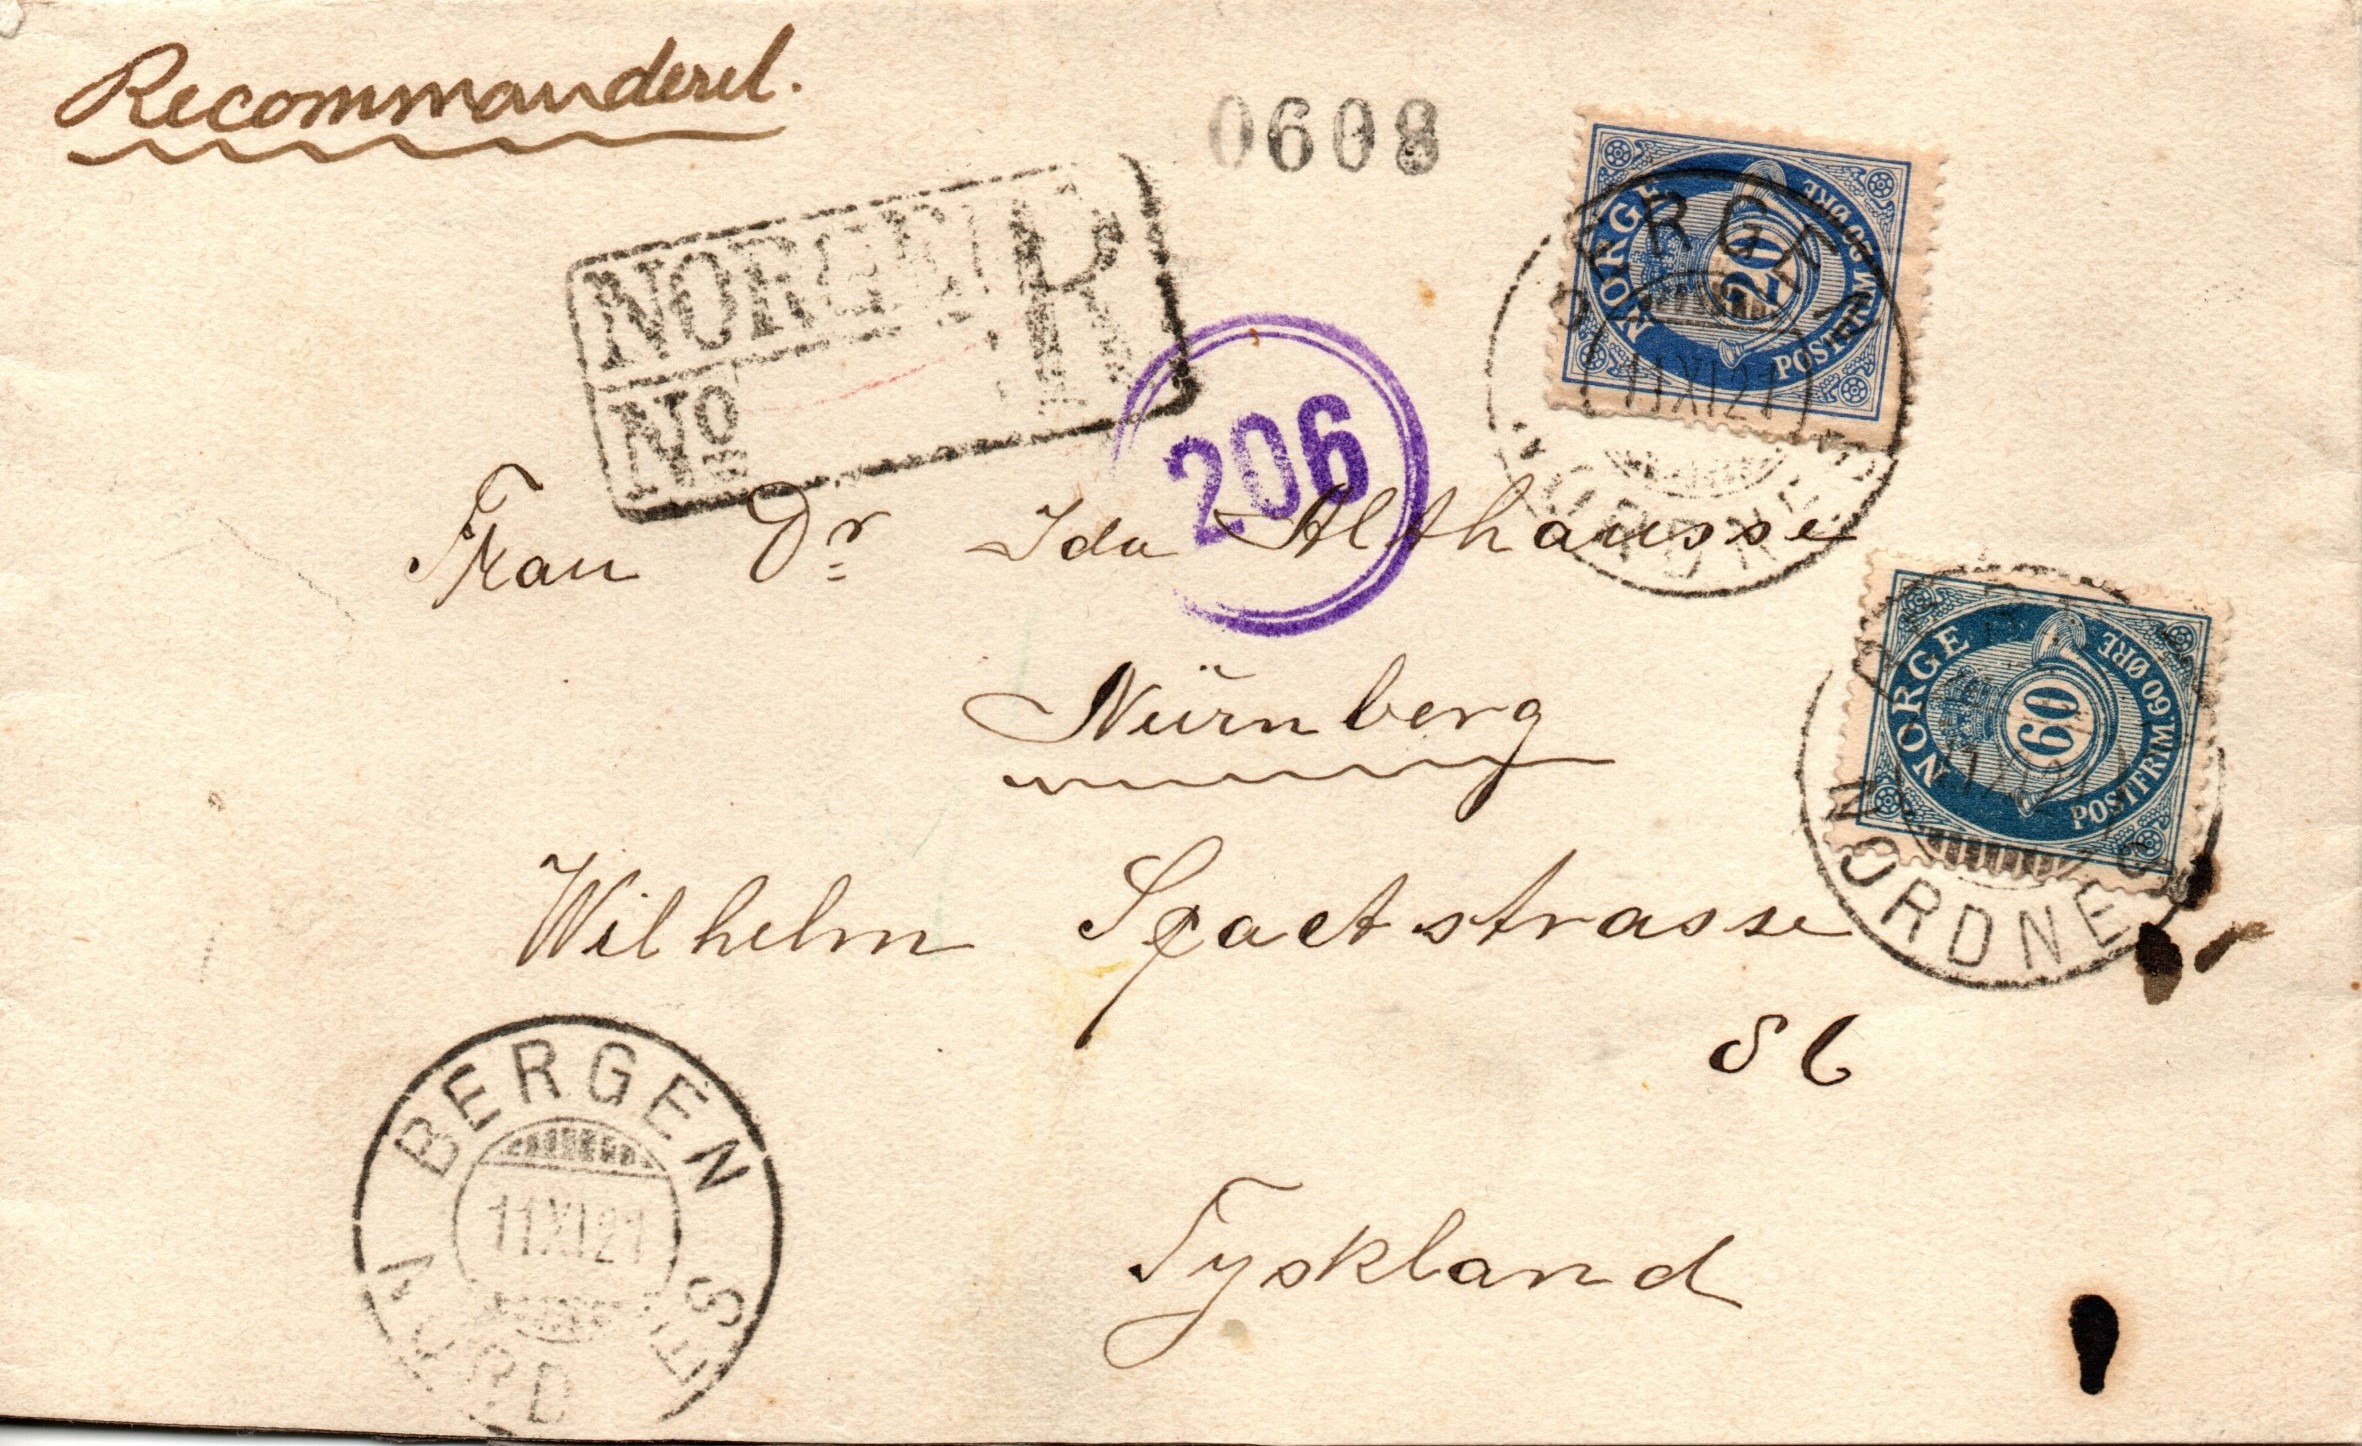 Recommanderet.
0608
NORGE
20
POSTFRIM. 20 ØRE
NORGE R
Nº
BERGEN
11 XI 21
NORDNES
206
Frau Dr Ida Althausse
NORGE
60
POSTFRIM. 60 ØRE
Nürnberg
NORDNES
Wilhelm Spaetstrasse
86
BERGEN
11 XI 21
NORDNES
Tyskland